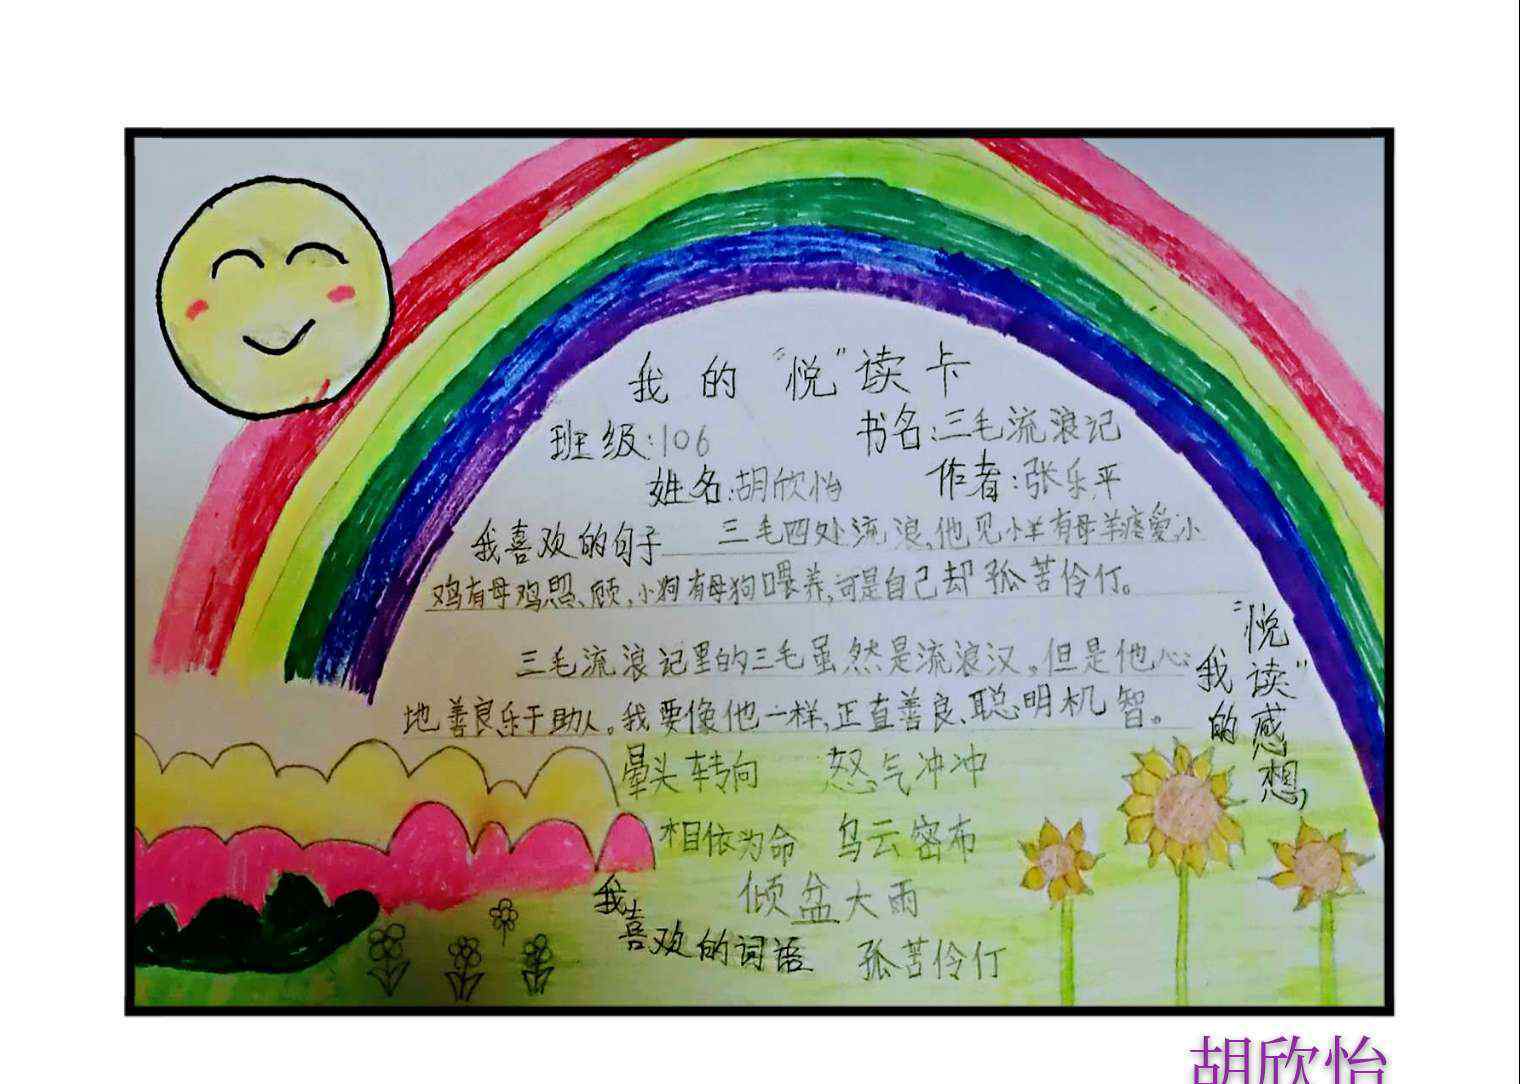 我的“悦”读卡
班级:106
书名:三毛流浪记
姓名:胡欣怡
作者:张乐平
我喜欢的句子 三毛四处流浪,他见小羊有母羊疼爱,小
鸡有母鸡照顾,小狗有母狗喂养,可是自己却孤苦伶仃。
三毛流浪记里的三毛虽然是流浪汉。但是他心
地善良乐于助人。我要像他一样,正直善良、聪明机智。
我的
“悦读”感想
晕头转向 怒气冲冲
相依为命 乌云密布
倾盆大雨
我喜欢的词语 孤苦伶仃
胡欣怡